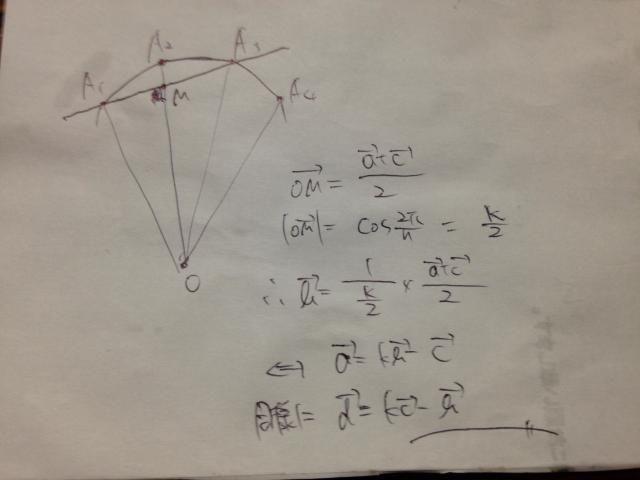 A₁ A₂ A₃ A₄
M
O
\vec{OM} = \frac{\vec{a}+\vec{c}}{2}
|\vec{OM}| = cos\frac{2π}{n} = \frac{k}{2}
∴ \vec{b} = \frac{1}{\frac{k}{2}} × \frac{\vec{a}+\vec{c}}{2}
⟺ \vec{a} = k\vec{b} - \vec{c}
同様に \vec{d} = k\vec{c} - \vec{b}